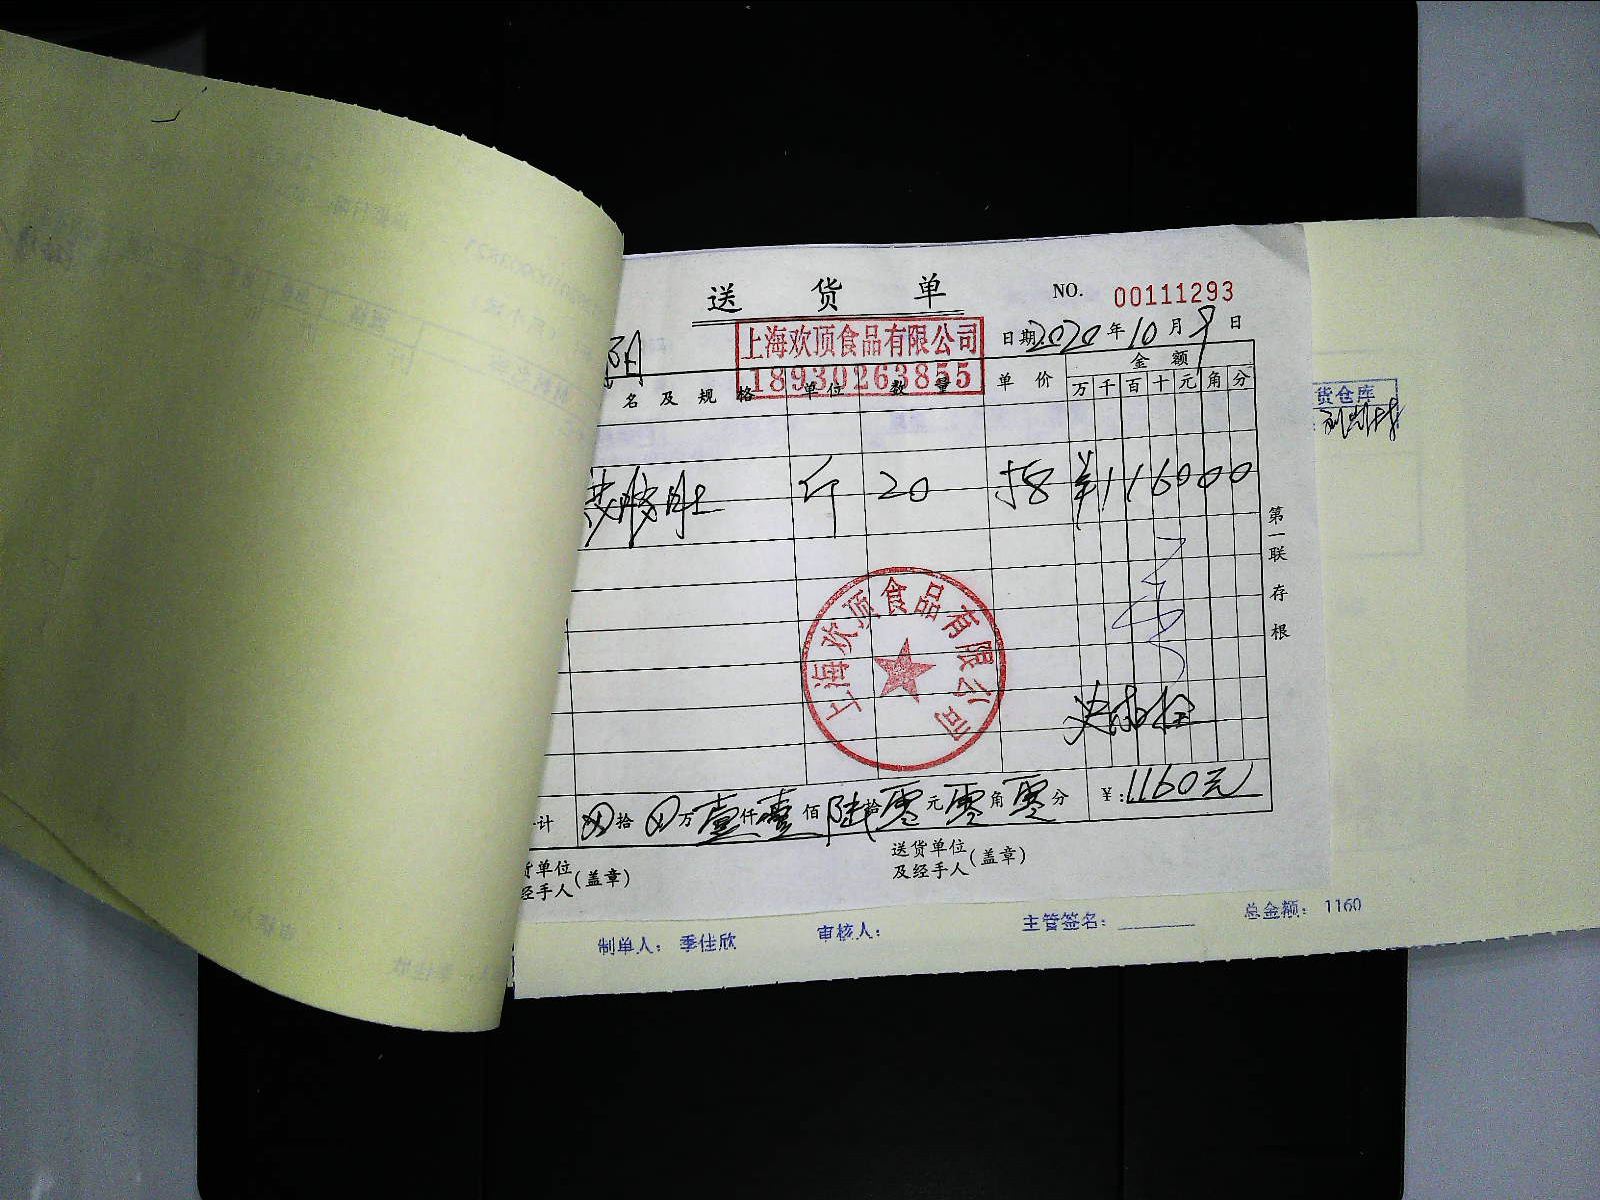 送 货 单 NO. 00111293
上海欢顶食品有限公司
18930263855
日期2020年10月9日
名 及 规 格 单位 数 量 单 价 金 额
万 千 百 十 元 角 分
货仓库
斤 20 58 ¥116000
第一联 存根
上海欢顶食品有限公司
计 ⊗拾⊗万壹仟壹佰陆拾零元零角零分 ¥:1160元
货单位
经手人(盖章)
送货单位
及经手人(盖章)
制单人: 季佳欣 审核人: 主管签名: 总金额: 1160